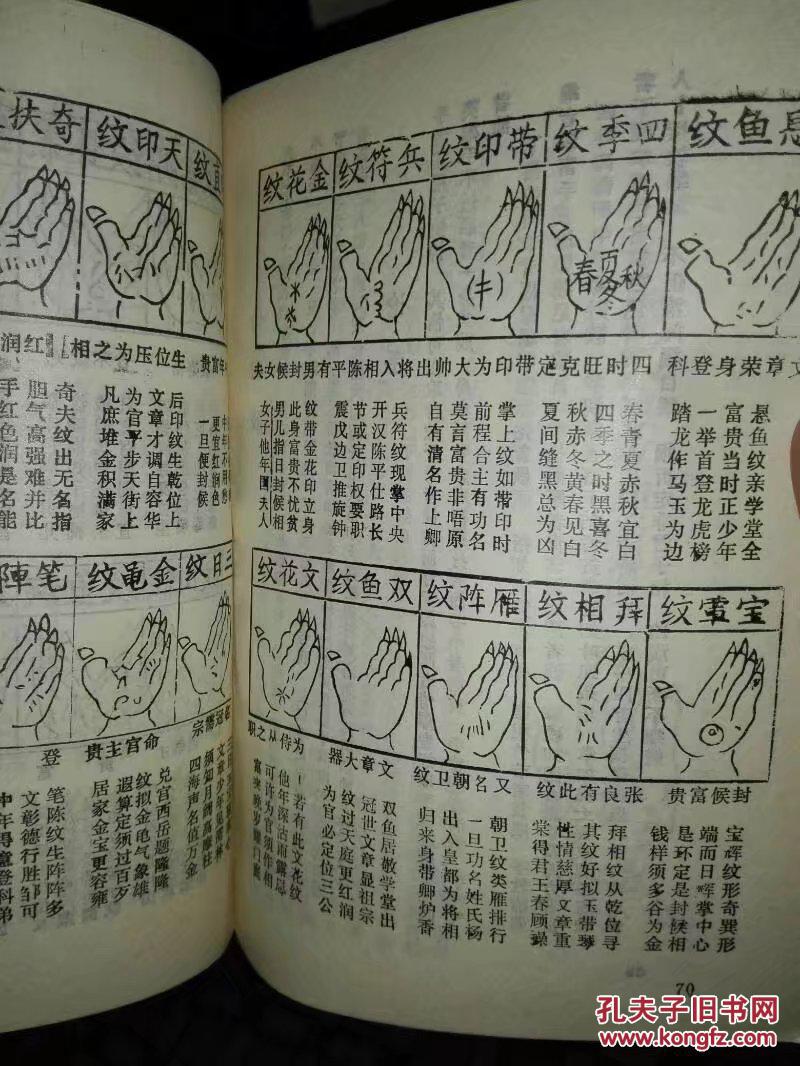 纹
天印纹
奇扶
生位压为之相
红润
更宜红润色
一旦便封候
后印纹生乾位上
文章才调自容华
为官平步天街上
凡庶堆金积满家
奇夫纹出无名指
胆气高强难并比
手红色润是名能
三日纹
金黾纹
笔陣
命官主贵
登
四海声名值万金
兑宫西岳题隆隆
纹拟金黾气象雄
遐算定须过百岁
居家金宝更容雍
笔陈纹生阵阵多
文彰德行胜邹可
中年得童登科弟
悬鱼纹
四季纹
带印纹
兵符纹
金花纹
文章荣身登科
四时旺克定
带印为大帅
出将入相陈平有
男封候女夫
春夏秋冬
悬鱼纹亲学堂全
富贵当时正少年
一举首登龙虎榜
踏龙作马玉为边
春青夏赤秋宜白
四季之时黑喜冬
秋赤冬黄春见白
夏间缝黑总为凶
掌上纹如带印时
前程合主有功名
莫言富贵非唔原
自有清名作上卿
兵符纹现掌中央
开汉陈平仕路长
节或定印权要职
震戊边卫推旋钟
纹带金花印立身
此身富贵不忧贫
男儿指日封候相
女子他年国夫人
宝䨓纹
拜相纹
雁阵纹
双鱼纹
文花纹
封候富贵
张良有此纹
又名朝卫纹
文章大器
为侍从之职
宝辉纹形奇異形
端而日晖掌中心
是环定是封候相
钱样须多谷为金
拜相纹从乾位寻
其纹好拟玉带琴
性情慈厚文章重
棠得君王春顾操
朝卫纹类雁排行
一旦功名姓氏杨
出入皇都为将相
归来身带卿炉香
双鱼居敬学堂出
冠世文章显祖宗
纹过天庭更红润
为官必定位三公
若有此文花纹
可许为官须作相
70
孔夫子旧书网
www.kongfz.com